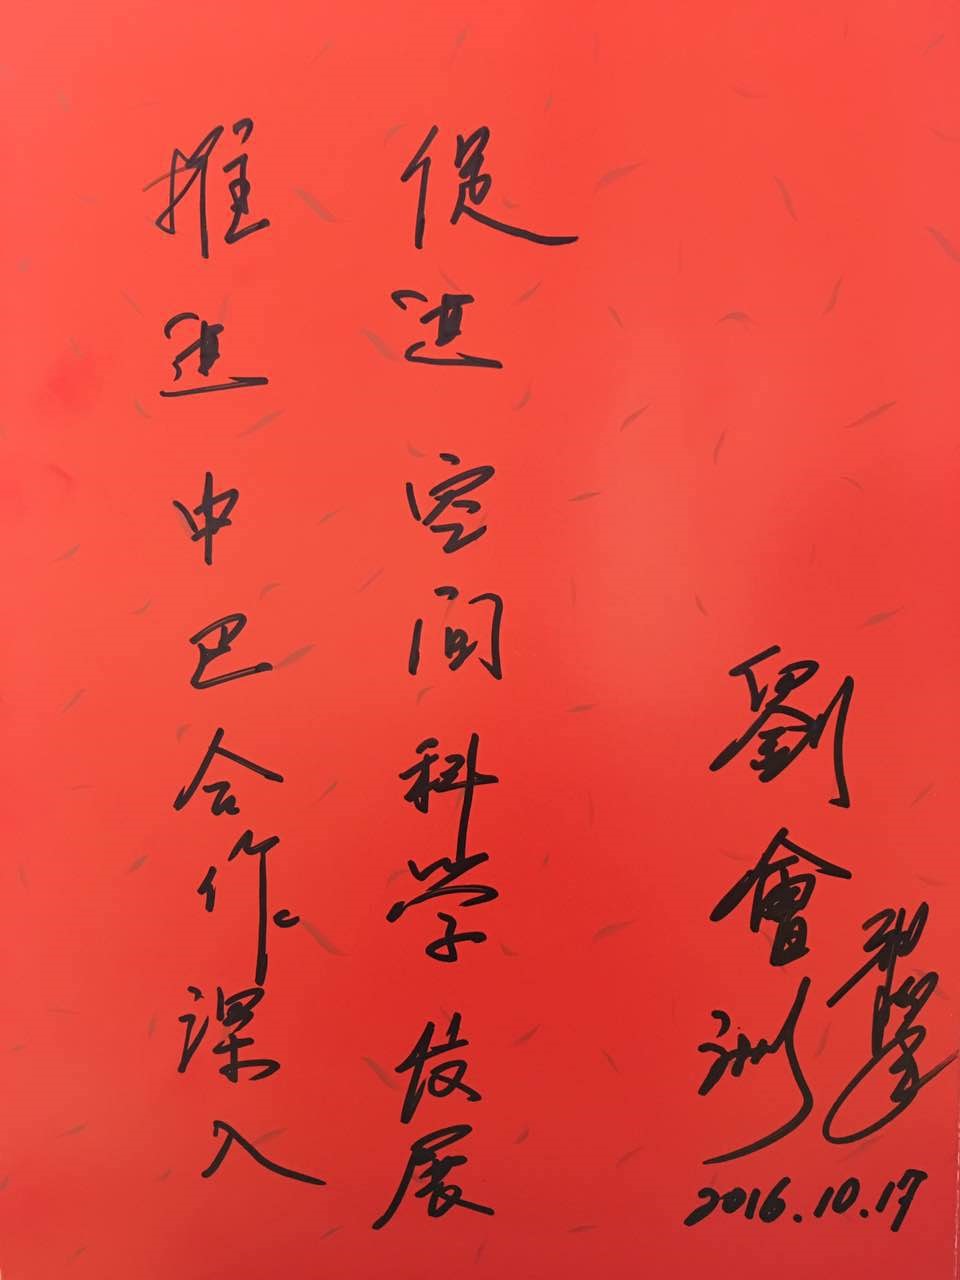 推进中巴合作深入
促进空间科学发展
劉會洲
2016.10.17